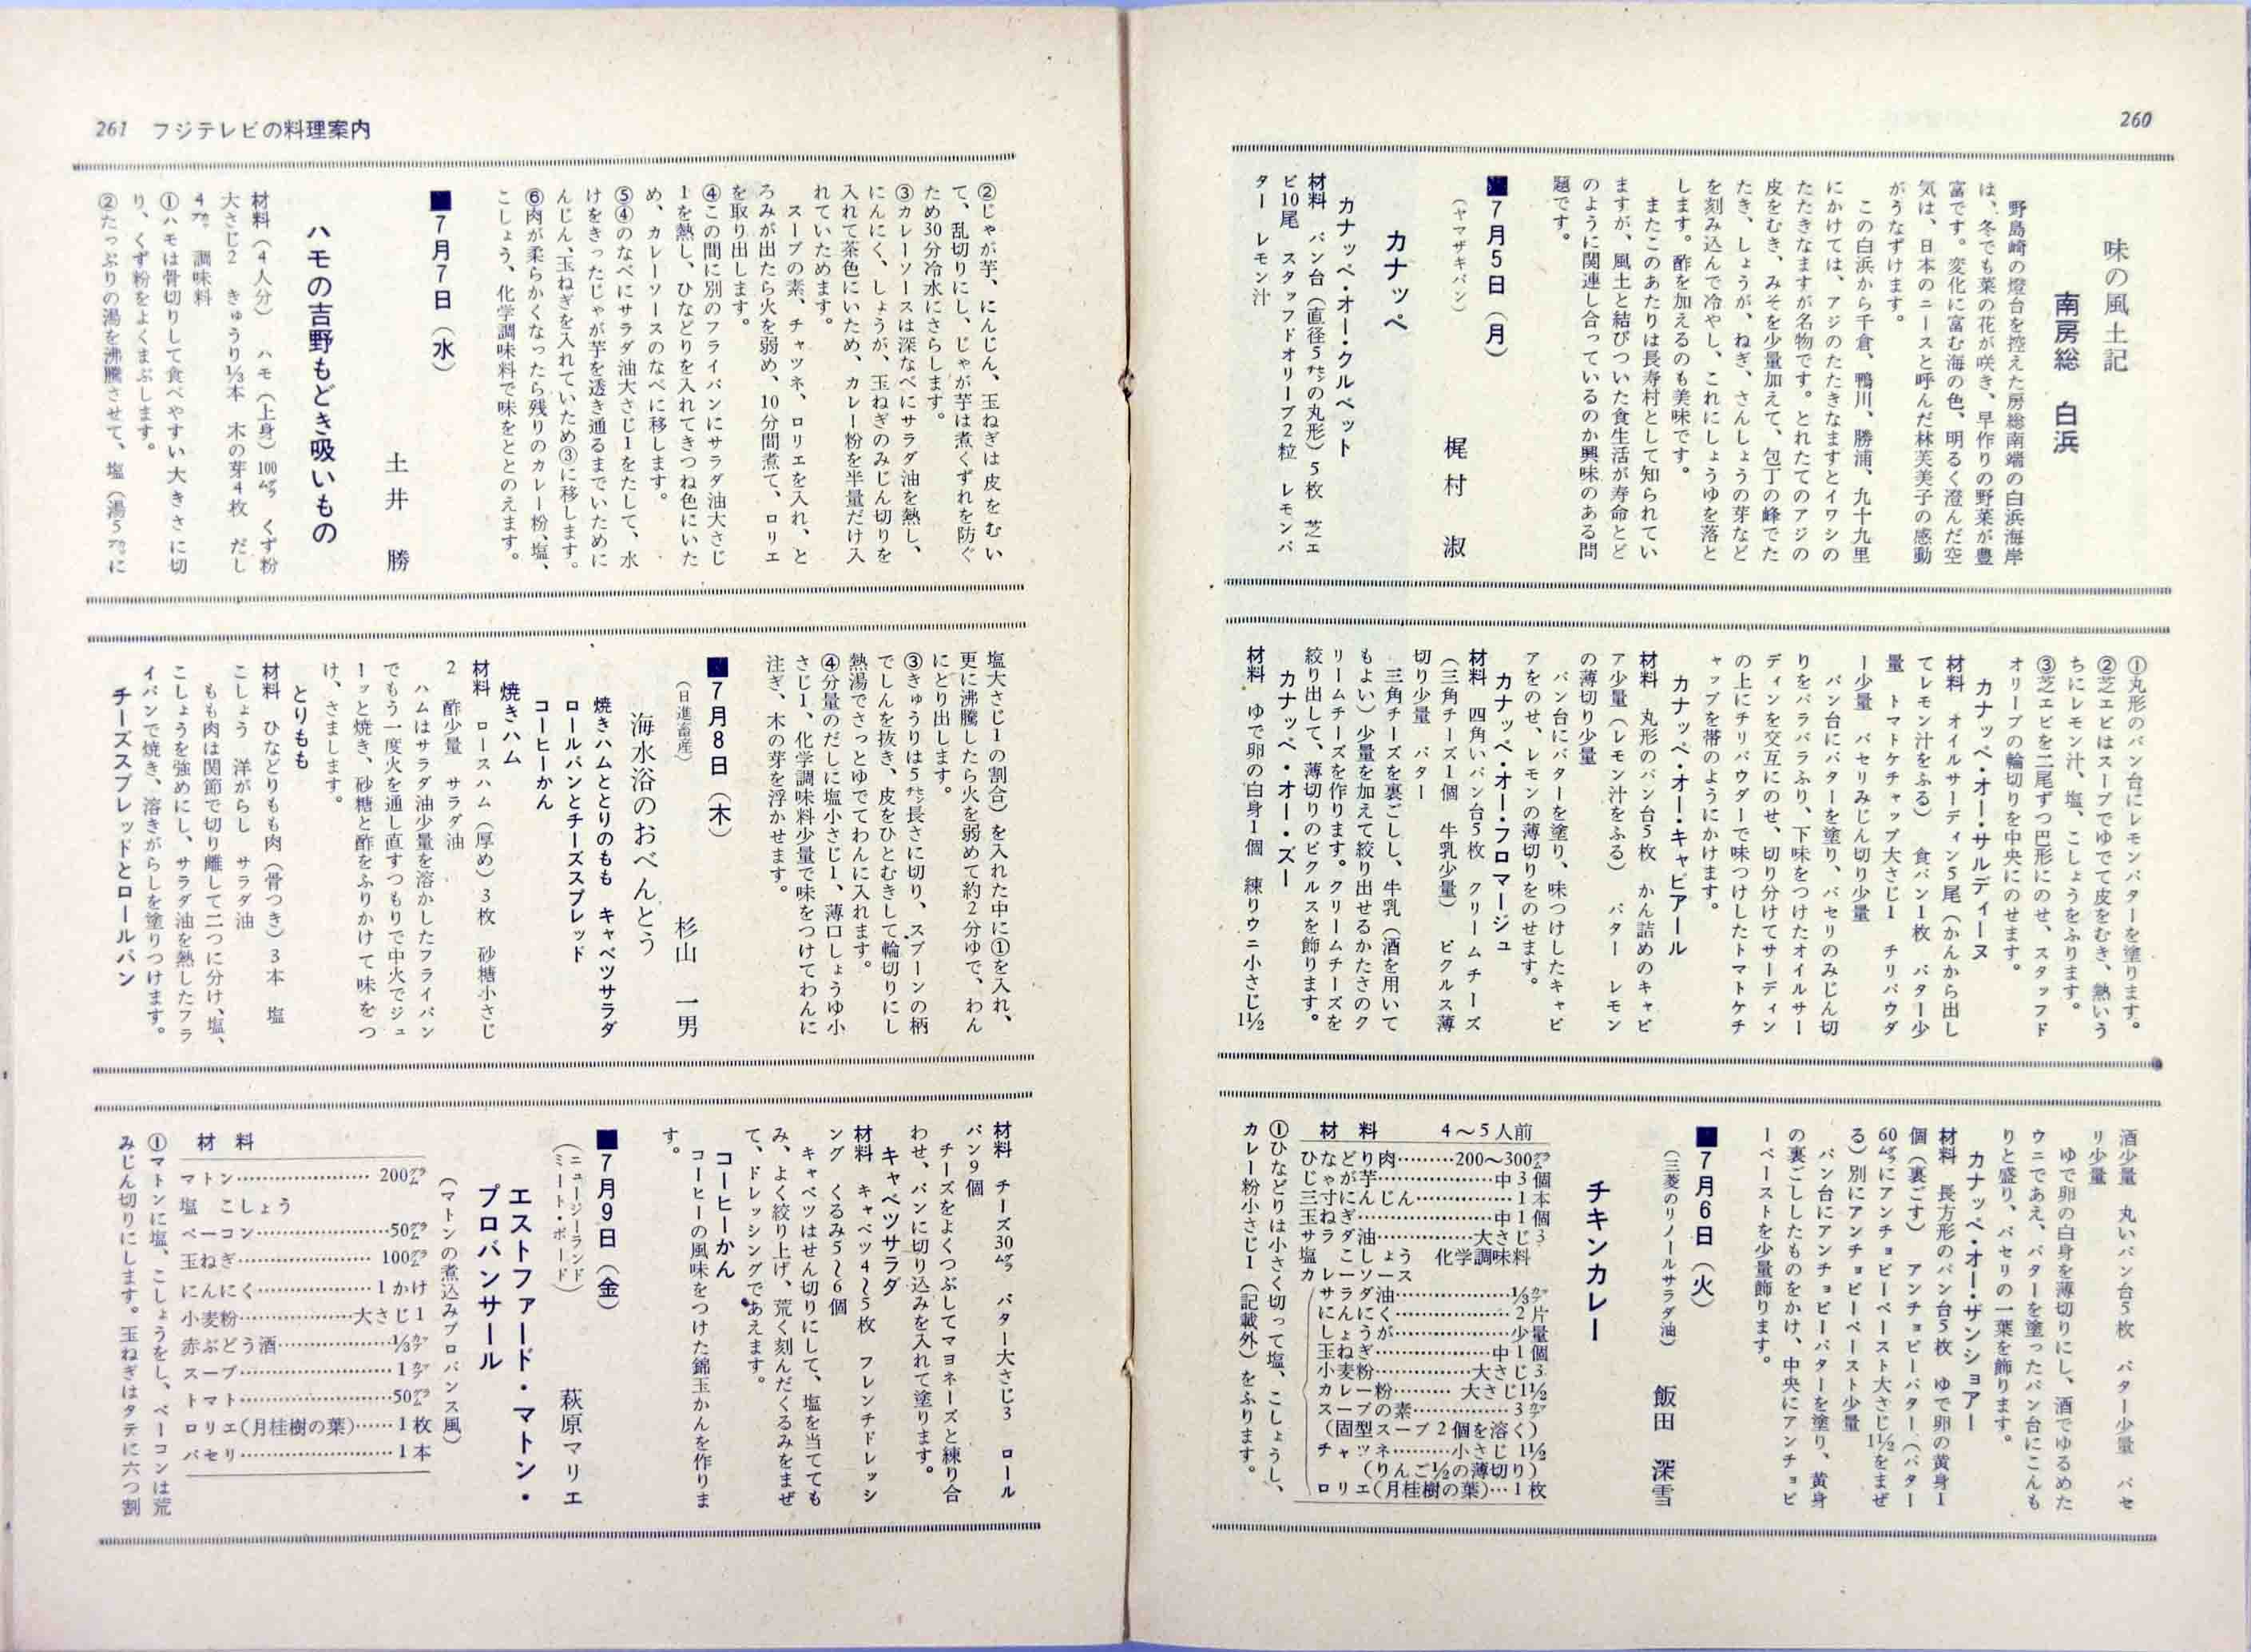 260
味の風土記
南房総 白浜
野島崎の燈台を控えた房総南端の白浜海岸
は、冬でも菜の花が咲き、早作りの野菜が豊
富です。変化に富む海の色、明るく澄んだ空
気は、日本のニースと呼んだ林芙美子の感動
がうなずけます。
この白浜から千倉、鴨川、勝浦、九十九里
にかけては、アジのたたきなますとイワシの
たたきなますが名物です。とれたてのアジの
皮をむき、みそを少量加えて、包丁の峰でた
たき、しょうが、ねぎ、さんしょうの芽など
を刻み込んで冷やし、これにしょうゆを落と
します。酢を加えるのも美味です。
またこのあたりは長寿村として知られてい
ますが、風土と結びついた食生活が寿命とど
のように関連し合っているのか興味のある問
題です。
■7月5日（月）
（ヤマザキパン）
梶村 淑
カナッペ
カナッペ・オー・クルベット
材料 パン台（直径5㌢の丸形）5枚 芝エ
ビ10尾 スタッフドオリーブ2粒 レモンバ
ター レモン汁
①丸形のパン台にレモンバターを塗ります。
②芝エビはスープでゆでて皮をむき、熱いう
ちにレモン汁、塩、こしょうをふります。
③芝エビを二尾ずつ巴形にのせ、スタッフド
オリーブの輪切りを中央にのせます。
カナッペ・オー・サルディーヌ
材料 オイルサーディン5尾（かんから出し
てレモン汁をふる） 食パン1枚 バター少
量 トマトケチャップ大さじ1 チリパウダ
ー少量 パセリみじん切り少量
パン台にバターを塗り、パセリのみじん切
りをパラパラふり、下味をつけたオイルサー
ディンを交互にのせ、切り分けてサーディン
の上にチリパウダーで味つけしたトマトケチ
ャップを帯のようにかけます。
カナッペ・オー・キャビアール
材料 丸形のパン台5枚 かん詰めのキャビ
ア少量（レモン汁をふる） バター レモン
の薄切り少量
パン台にバターを塗り、味つけしたキャビ
アをのせ、レモンの薄切りをのせます。
カナッペ・オー・フロマージュ
材料 四角いパン台5枚 クリームチーズ
（三角チーズ1個 牛乳少量） ピクルス薄
切り少量 バター
三角チーズを裏ごしし、牛乳（酒を用いて
もよい）少量を加えて絞り出せるかたさのク
リームチーズを作ります。クリームチーズを
絞り出して、薄切りのピクルスを飾ります。
カナッペ・オー・ズー
材料 ゆで卵の白身1個 練りウニ小さじ1½
酒少量 丸いパン台5枚 バター少量 パセ
リ少量
ゆで卵の白身を薄切りにし、酒でゆるめた
ウニであえ、バターを塗ったパン台にこんも
りと盛り、パセリの一葉を飾ります。
カナッペ・オー・ザンショアー
材料 長方形のパン台5枚 ゆで卵の黄身1
個（裏ごす） アンチョビーバター（バター
60㌘にアンチョビーペースト大さじ1½をまぜ
る）別にアンチョビーペースト少量
パン台にアンチョビーバターを塗り、黄身
の裏ごししたものをかけ、中央にアンチョビ
ーペーストを少量飾ります。
■7月6日（火）
（三菱のリノールサラダ油）
飯田 深雪
チキンカレー
材料 4～5人前
ひなどり肉………200～300㌘
じゃが芋……………中3個
三寸にんじん……………1本
玉ねぎ………………中1個
サラダ油……………大さじ3
塩 こしょう 化学調味料
カレーソース
サラダ油……………⅓㌍
にんにく……………2片
しょうが……………少量
玉ねぎ………………中1個
小麦粉……………大さじ3
カレー粉………大さじ1½
スープの素……………3㌍
（固型スープ2個を溶く）
チャツネ………小さじ1½
（りんご½の薄切り）
ロリエ(月桂樹の葉)…1枚
①ひなどりは小さく切って塩、こしょうし、
カレー粉小さじ1（記載外）をふります。
261 フジテレビの料理案内
②じゃが芋、にんじん、玉ねぎは皮をむい
て、乱切りにし、じゃが芋は煮くずれを防ぐ
ため30分冷水にさらします。
③カレーソースは深なべにサラダ油を熱し、
にんにく、しょうが、玉ねぎのみじん切りを
入れて茶色にいため、カレー粉を半量だけ入
れていためます。
スープの素、チャツネ、ロリエを入れ、と
ろみが出たら火を弱め、10分間煮て、ロリエ
を取り出します。
④この間に別のフライパンにサラダ油大さじ
1を熱し、ひなどりを入れてきつね色にいた
め、カレーソースのなべに移します。
⑤④のなべにサラダ油大さじ1をたして、水
けをきったじゃが芋を透き通るまでいために
んじん、玉ねぎを入れていため③に移します。
⑥肉が柔らかくなったら残りのカレー粉、塩、
こしょう、化学調味料で味をととのえます。
■7月7日（水）
土井 勝
ハモの吉野もどき吸いもの
材料（4人分） ハモ（上身）100㌘ くず粉
大さじ2 きゅうり⅓本 木の芽4枚 だし
4㌍ 調味料
①ハモは骨切りして食べやすい大きさに切
り、くず粉をよくまぶします。
②たっぷりの湯を沸騰させて、塩（湯5㌍に
塩大さじ1の割合）を入れた中に①を入れ、
更に沸騰したら火を弱めて約2分ゆで、わん
にどり出します。
③きゅうりは5㌢長さに切り、スプーンの柄
でしんを抜き、皮をひとむきして輪切りにし
熱湯でさっとゆでてわんに入れます。
④分量のだしに塩小さじ1、薄口しょうゆ小
さじ1、化学調味料少量で味をつけてわんに
注ぎ、木の芽を浮かせます。
■7月8日（木）
（日進畜産）
杉山 一男
海水浴のおべんとう
焼きハムととりのもも キャベツサラダ
ロールパンとチーズスプレッド
コーヒーかん
焼きハム
材料 ロースハム（厚め）3枚 砂糖小さじ
2 酢少量 サラダ油
ハムはサラダ油少量を溶かしたフライパン
でもう一度火を通し直すつもりで中火でジュ
ーッと焼き、砂糖と酢をふりかけて味をつ
け、さまします。
とりもも
材料 ひなどりもも肉（骨つき）3本 塩
こしょう 洋がらし サラダ油
もも肉は関節で切り離して二つに分け、塩、
こしょうを強めにし、サラダ油を熱したフラ
イパンで焼き、溶きがらしを塗りつけます。
チーズスプレッドとロールパン
材料 チーズ30㌘ バター大さじ3 ロール
パン9個
チーズをよくつぶしてマヨネーズと練り合
わせ、パンに切り込みを入れて塗ります。
キャベツサラダ
材料 キャベツ4～5枚 フレンチドレッシ
ング くるみ5～6個
キャベツはせん切りにして、塩を当てても
み、よく絞り上げ、荒く刻んだくるみをまぜ
て、ドレッシングであえます。
コーヒーかん
コーヒーの風味をつけた錦玉かんを作りま
す。
■7月9日（金）
（ニュージーランド
ミート・ボード）
萩原マリエ
エストファード・マトン・
プロバンサール
（マトンの煮込みプロバンス風）
材料
マトン…………………200㌘
塩 こしょう
ベーコン………………50㌘
玉ねぎ…………………100㌘
にんにく………………1かけ
小麦粉……………大さじ1
赤ぶどう酒……………⅓㌍
スープ…………………1㌍
トマト…………………50㌘
ロリエ(月桂樹の葉)……1枚
パセリ…………………1本
①マトンに塩、こしょうをし、ベーコンは荒
みじん切りにします。玉ねぎはタテに六つ割